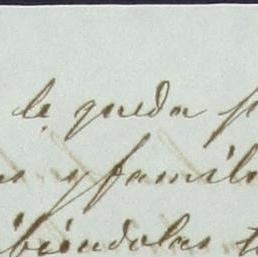 le queda
y famili
biendolas